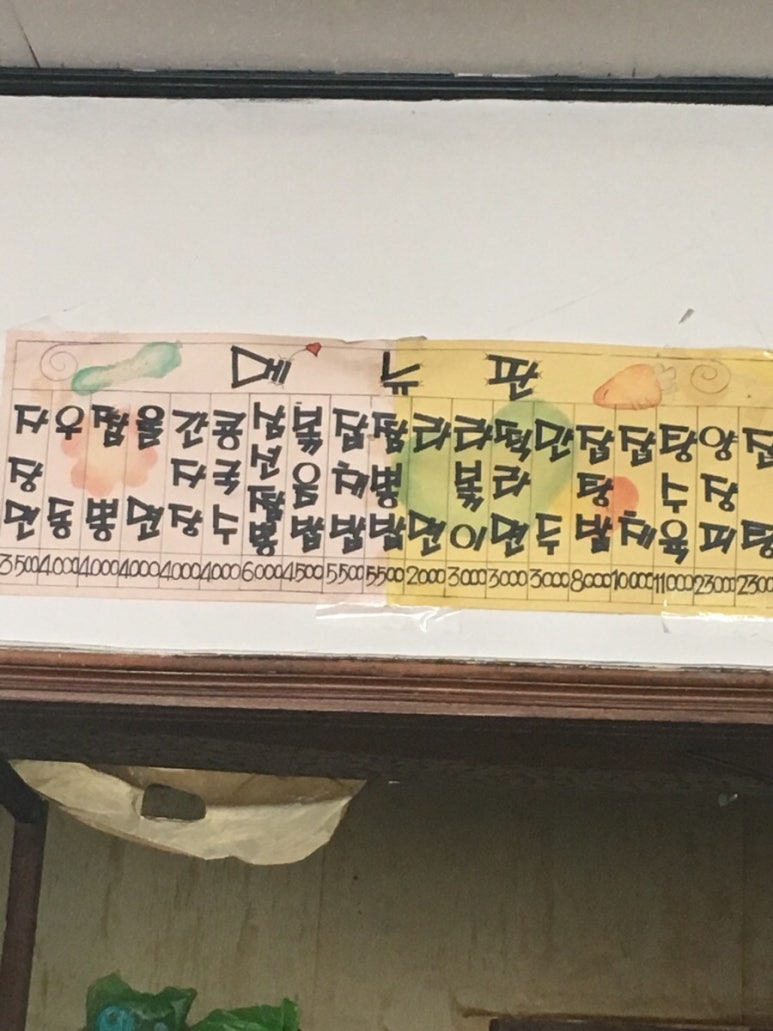 메뉴판
자장면 3500
우동 4000
짬뽕 4000
울면 4000
간자장 4000
콩국수 4000
6000
볶음밥 4500
잡채밥 5500
짬뽕밥 5500
라면 2000
라볶이 3000
떡라면 3000
만두 3000
잡탕밥 8000
잡채 10000
탕수육 11000
양장피 23000
잡탕